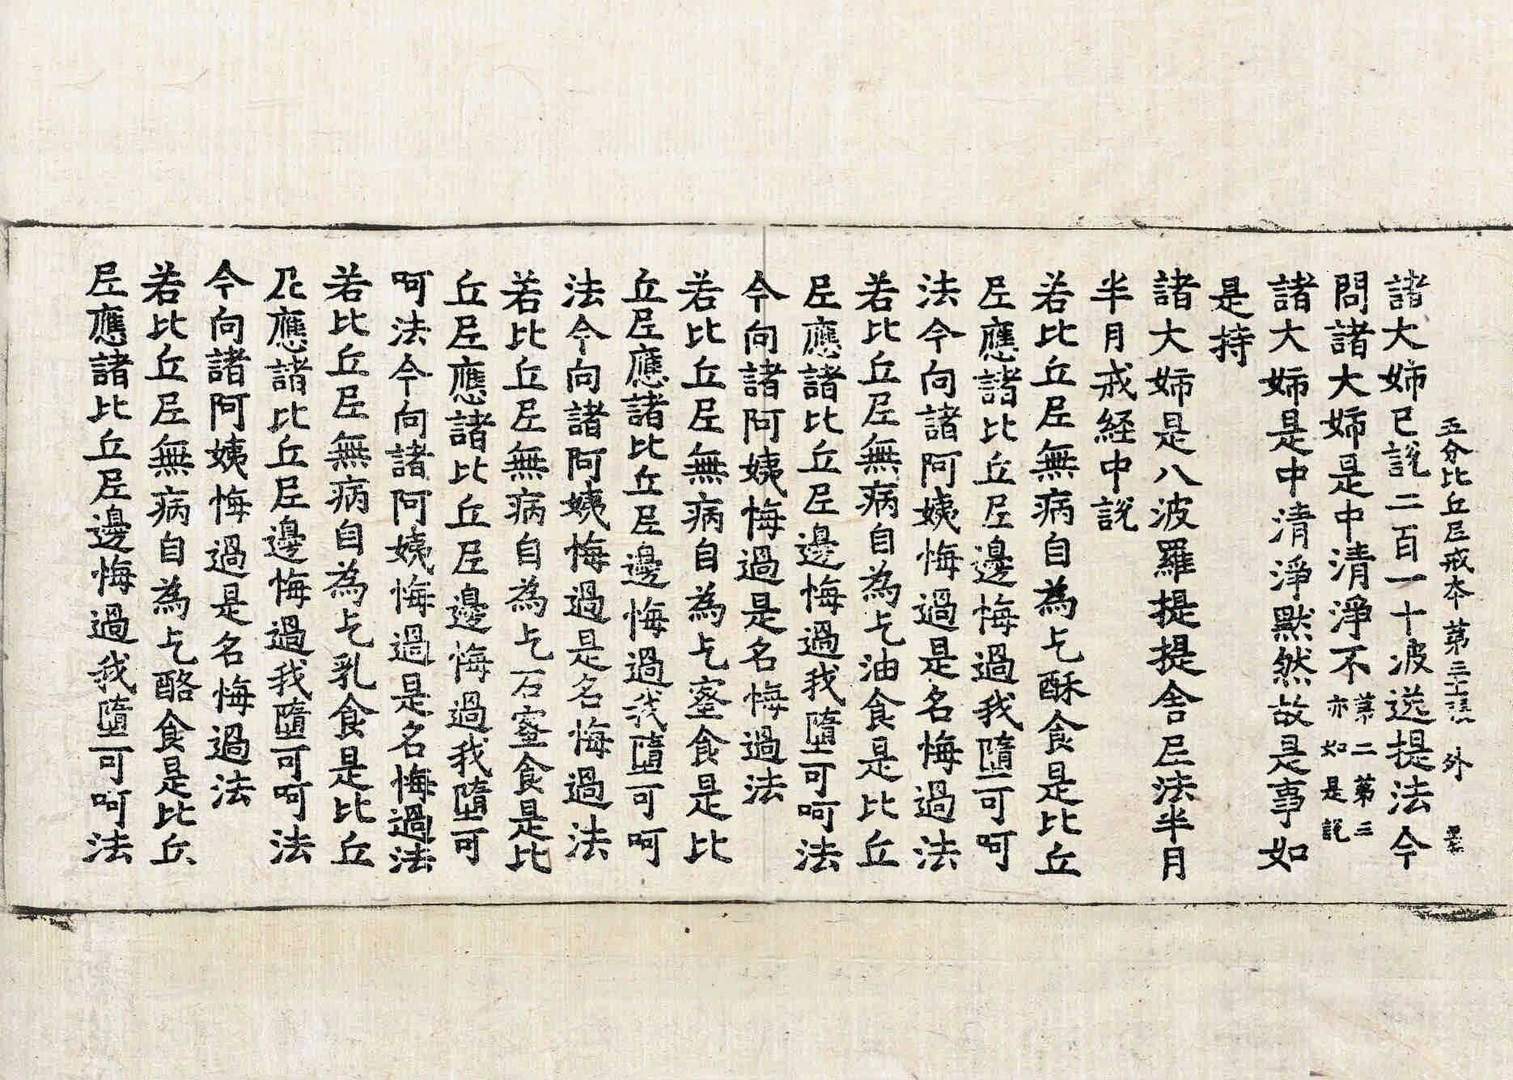 五分比丘尼戒本 第三十張 外
諸大姉已說二百一十波逸提法今
問諸大姉是中清淨不第二第三亦如是說
諸大姉是中清淨默然故是事如
是持
諸大姉是八波羅提提舍尼法半月
半月戒経中說
若比丘尼無病自為乞酥食是比丘
尼應諸比丘尼邊悔過我墮可呵
法今向諸阿姨悔過是名悔過法
若比丘尼無病自為乞油食是比丘
尼應諸比丘尼邊悔過我墮可呵法
今向諸阿姨悔過是名悔過法
若比丘尼無病自為乞蜜食是比
丘尼應諸比丘尼邊悔過我墮可呵
法今向諸阿姨悔過是名悔過法
若比丘尼無病自為乞石蜜食是比
丘尼應諸比丘尼邊悔過我墮可
呵法今向諸阿姨悔過是名悔過法
若比丘尼無病自為乞乳食是比丘
尼應諸比丘尼邊悔過我墮可呵法
今向諸阿姨悔過是名悔過法
若比丘尼無病自為乞酪食是比丘
尼應諸比丘尼邊悔過我墮可呵法